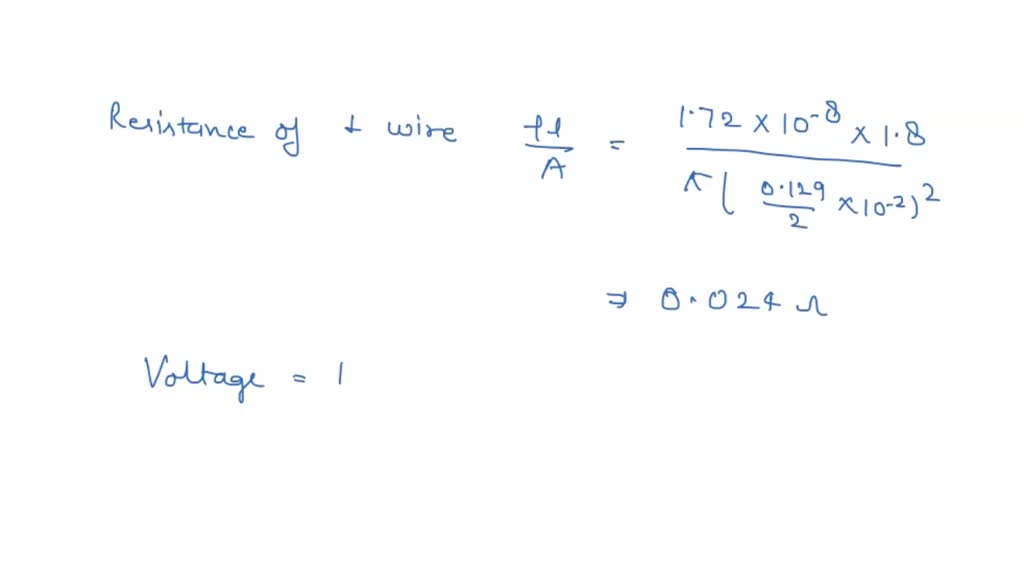 Resistance of 1 wire ρl/A = 1.72 × 10⁻⁸ × 1.8 / π ( 0.129/2 × 10⁻²)²
⇒ 0.024 Ω
Voltage = 1